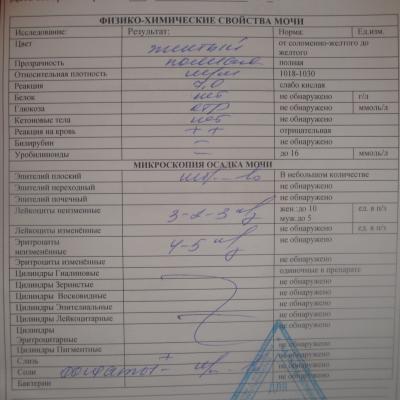 ФИЗИКО-ХИМИЧЕСКИЕ СВОЙСТВА МОЧИ
Исследование: Результат: Норма: Ед.изм.
Цвет желтый от соломенно-желтого до желтого
Прозрачность полная
Относительная плотность 1018-1030
Реакция 7,0 слабо кислая
Белок нет не обнаружено г/л
Глюкоза отр не обнаружено ммоль/л
Кетоновые тела нет не обнаружено
Реакция на кровь ++ отрицательная
Билирубин – не обнаружено
Уробилиноиды – до 16 ммоль/л
МИКРОСКОПИЯ ОСАДКА МОЧИ
Эпителий плоский В небольшом количестве
Эпителий переходный не обнаружено
Эпителий почечный не обнаружено
Лейкоциты неизменные 3-2-3 жен.:до 10 ед. в п/з
муж.до 5
Лейкоциты изменённые не обнаружено ед. в п/з
Эритроциты неизменённые 4-5 не обнаружено
Эритроциты изменённые не обнаружено
Цилиндры Гиалиновые одиночные в препарате
Цилиндры Зернистые не обнаружено
Цилиндры Восковидные не обнаружено
Цилиндры Эпителиальные не обнаружено
Цилиндры Лейкоцитарные не обнаружено
Цилиндры Эритроцитарные не обнаружено
Цилиндры Пигментные не обнаружено
Слизь + не обнаружено
Соли не обнаружено
Бактерии не обнаружено
ДЛЯ